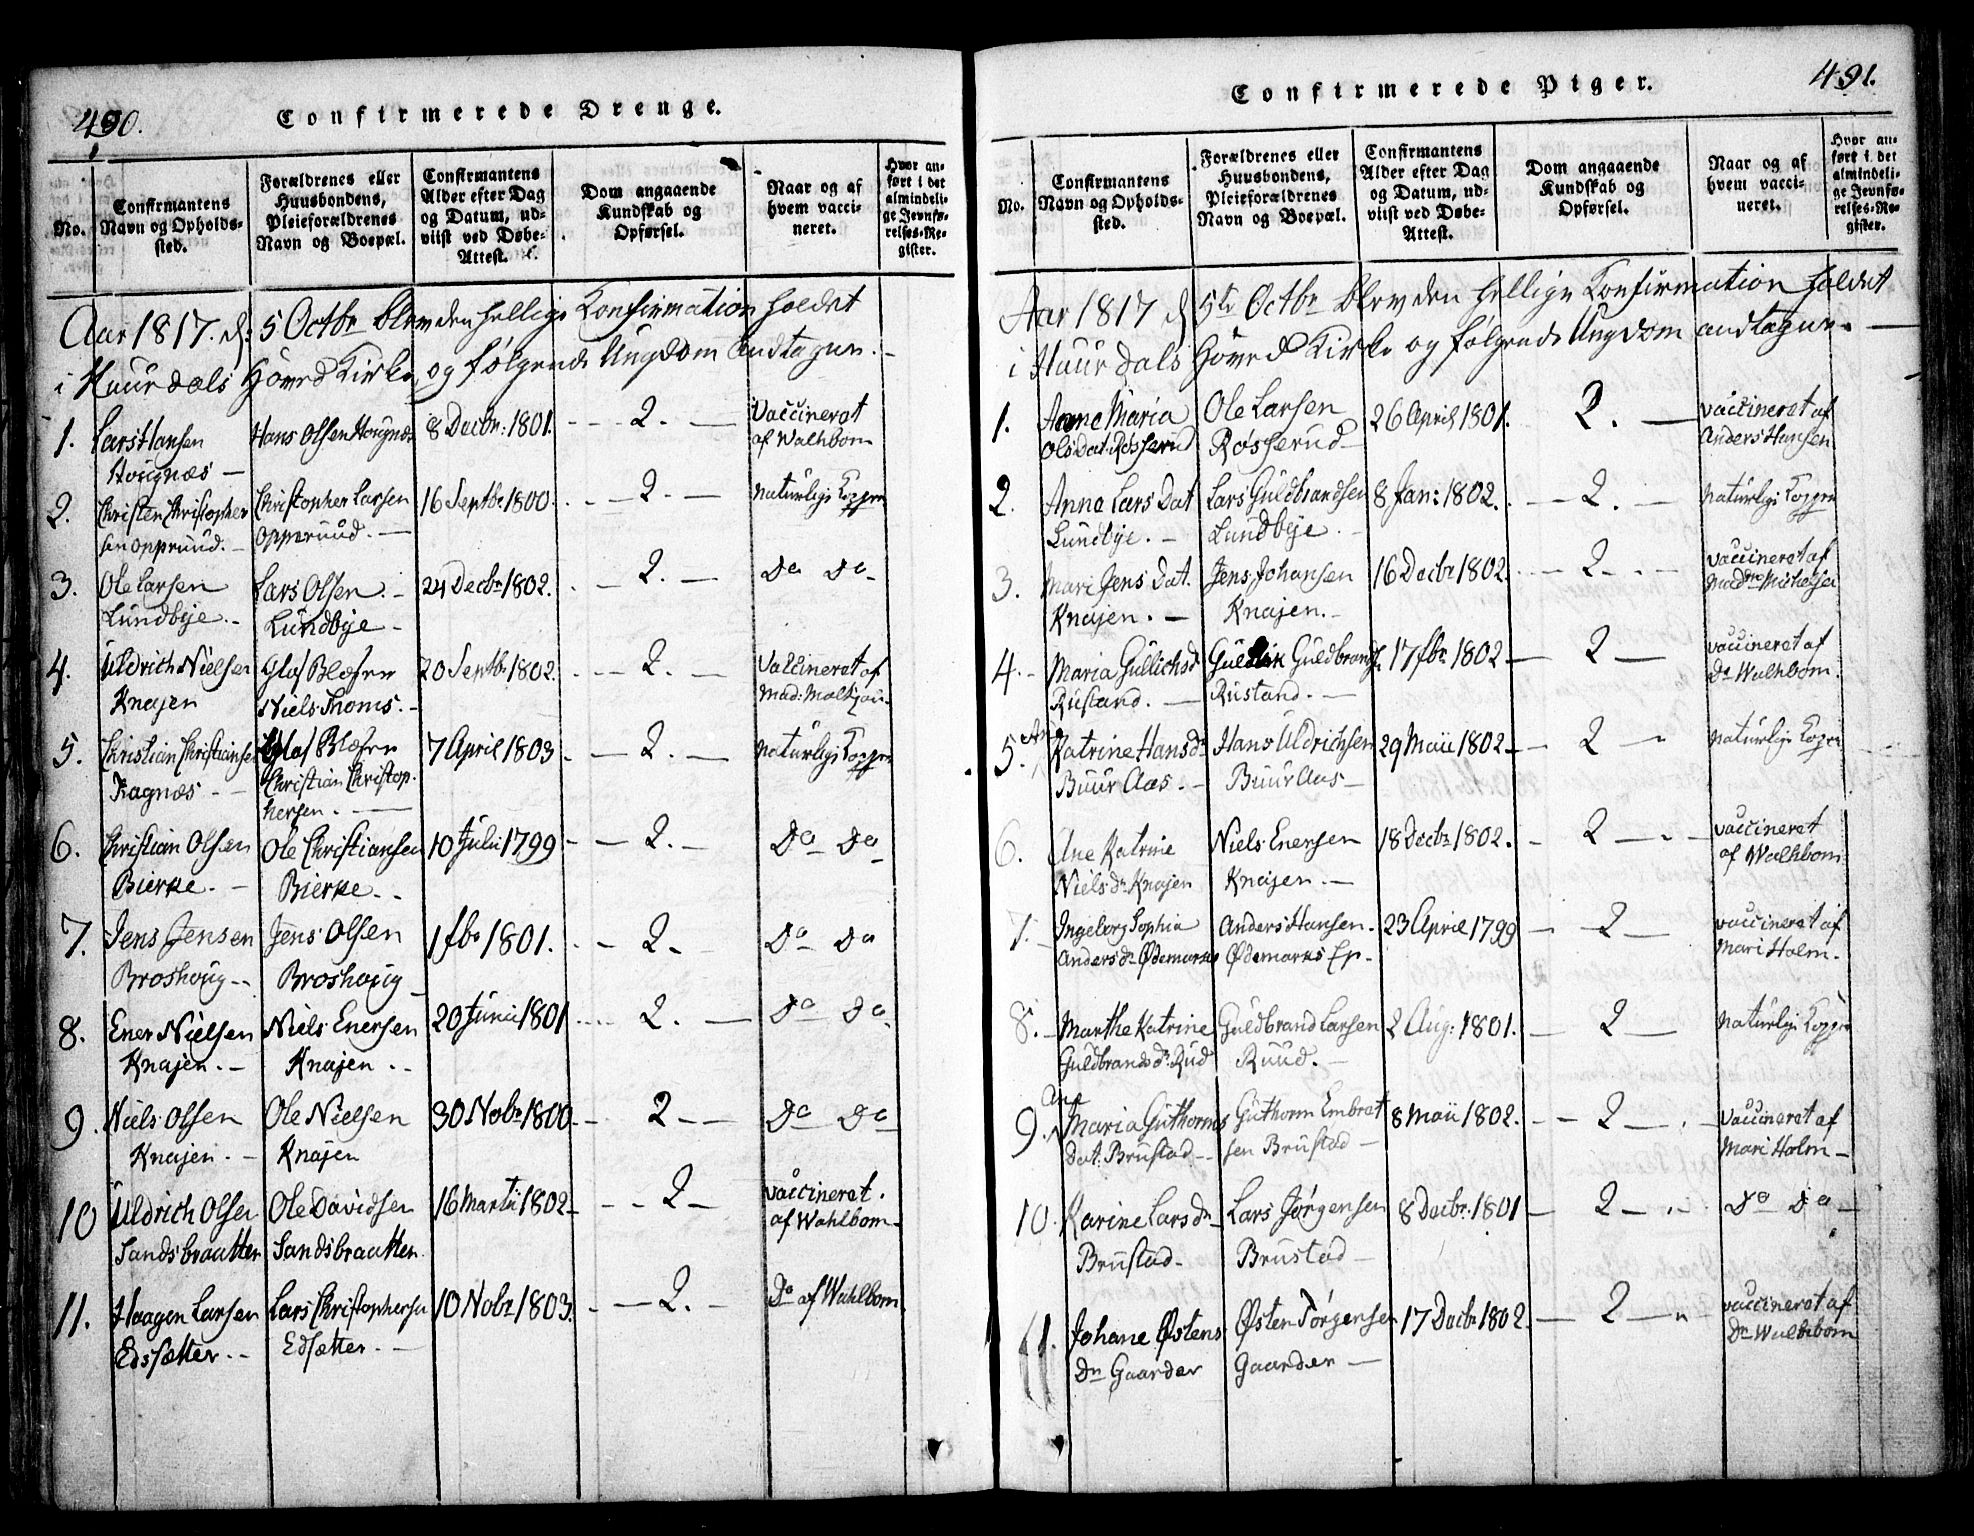 490.
Confirmerede Drenge.
No.
Confirmantens Navn og Opholds-
sted.
Forældrenes eller
Huusbondens,
Pleieforældrenes
Navn og Boepæl.
Confirmantens
Alder efter Dag
og Datum, ud-
viist ved Døbe-
Attest.
Dom angaaende
Kundskab og
Opførsel.
Naar og af
hvem vacci-
neret.
Hvor an-
ført i det
almindeli-
ge Jevnfø-
relses-Re-
gister.
Aar 1817. d: 5 Octbr blev den hellige Konfirmation holdet
i Huurdals Hoved Kirke og følgende Ungdom andtagen.
1. Lars Hansen Hans Olsen Hougnæs 8 Decbr: 1801. 2. Vaccineret
Hougnæs af Wahlbom
2. Christen Christopher Christopher Larsen 16 Septbr 1800. 2. naturlige Kopper
sen Oppruud. Oppruud.
3. Ole Larsen Lars Olsen 24 Decbr 1802. 2. Do Do
Lundbye. Lundbye
4. Uldrich Nielsen Glas Blæser 20 Septbr 1802. 2. Vaccineret af
Knajen Niels Thoms. Mad:
5. Christian Christiansen Glas Blæser 7 April 1803 2. naturlige Kopper
Ragnæs Christian Christop-
hersen.
6. Christian Olsen Ole Christiansen 10 Julii 1799 2. Do Do
Bierke. Bierke.
7. Jens Jensen Jens Olsen 1 fbr 1801. 2. Do Do
Broshoug Broshoug
8. Ener Nielsen Niels Enersen 20 Junii 1801 2. Do Do
Knajen. Knajen.
9. Niels Olsen Ole Nielsen 30 Nobr 1800 2 Do Do
Knajen. Knajen
10 Uldrich Olsen Ole Davidsen 16 Martii 1802 2 vaccineret.
Sandsbraatten Sandsbraatten. af Wahlbom
11. Haagen Larsen Lars Christophersen 10 Nobr 1803. 2. Do af Wahlbom
Edsætter. Edsætter.
491.
Confirmerede Piger.
No.
Confirmantens
Navn og Opholds-
sted.
Forældrenes eller
Huusbondens,
Pleieforældrenes
Navn og Boepæl.
Confirmantens
Alder efter Dag
og Datum, ud-
viist ved Døbe-
Attest.
Dom angaaende
Kundskab og
Opførsel.
Naar og af
hvem vacci-
neret.
Hvor an-
ført i det
almindeli-
ge Jevnfø-
relses-Re-
gister.
Aar 1817 d 5te Octbr blev den hellige Konfirmation holdet
i Huurdals Hoved Kirke og følgende Ungdom andtagen.
1. Anne Maria Ole Larsen 26 April 1801. 2. vaccineret af
Olsdat: Røsserud Røsserud Anders Hansen
2. Anne Lars Dat Lars Guldbrandsen 8 Jan: 1802. 2. naturlige Kopper
Lundbye. Lundbye.
3. Mari Jens Dat. Jens Johansen 16 Decbr 1802. 2. vaccineret af
Knajen. Knajen. Madme Michelsen
4. Maria Gullichsd Guldbrands. 17 fbr 1802 2 vaccineret af
Rustand. Rustand. Dr Wahlbom.
5. Ane Katrine Hansdr Hans Uldrichsen 29 Maii 1802 2 naturlige Kopper
Buur Aas. Buur Aas
6. Ane Katrine Niels Enersen 18 Decbr 1802. 2 vaccineret
Niels dr Knajen Knajen. af Wahlbom
7. Ingeborg Sophia Anders Hansen. 23 April 1799 2 vaccineret af
Anders dr Ødemarks Ødemarks Ep. Mari Holm.
8. Marthe Katrine Guldbrand Larsen 2 Aug: 1801. 2 naturlige Kopper
Guldbrands dr. Rud Ruud.
9. Ane Maria Guthorms Guthorm Embret 8 Maii 1802. 2 Vaccineret af
dat: Brustad sen Brustad Mari Holm
10. Karine Lars dr Lars Jørgensen 8 Decbr. 1801 2 Do Do
Brustad. Brustad
11. Johane Østens Østen Jørgensen 17 Decbr 1802. 2 vaccineret af
Dr Gaarder Gaarder Dr Wahlbom